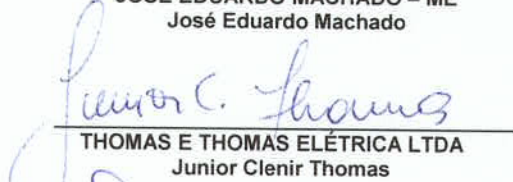 JOSÉ EDUARDO MACHADO – ME
José Eduardo Machado
Junior C. Thomas
THOMAS E THOMAS ELÉTRICA LTDA
Junior Clenir Thomas